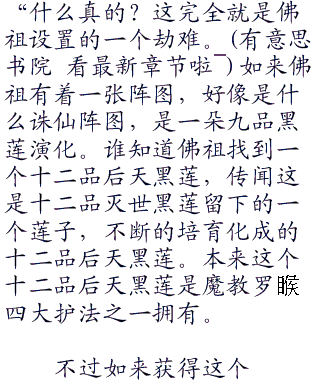 “什么真的？这完全就是佛
祖设置的一个劫难。(有意思
书院 看最新章节啦¯)如来佛
祖有着一张阵图，好像是什
么诛仙阵图，是一朵九品黑
莲演化。谁知道佛祖找到一
个十二品后天黑莲，传闻这
是十二品灭世黑莲留下的一
个莲子，不断的培育化成的
十二品后天黑莲。本来这个
十二品后天黑莲是魔教罗睺
四大护法之一拥有。
不过如来获得这个